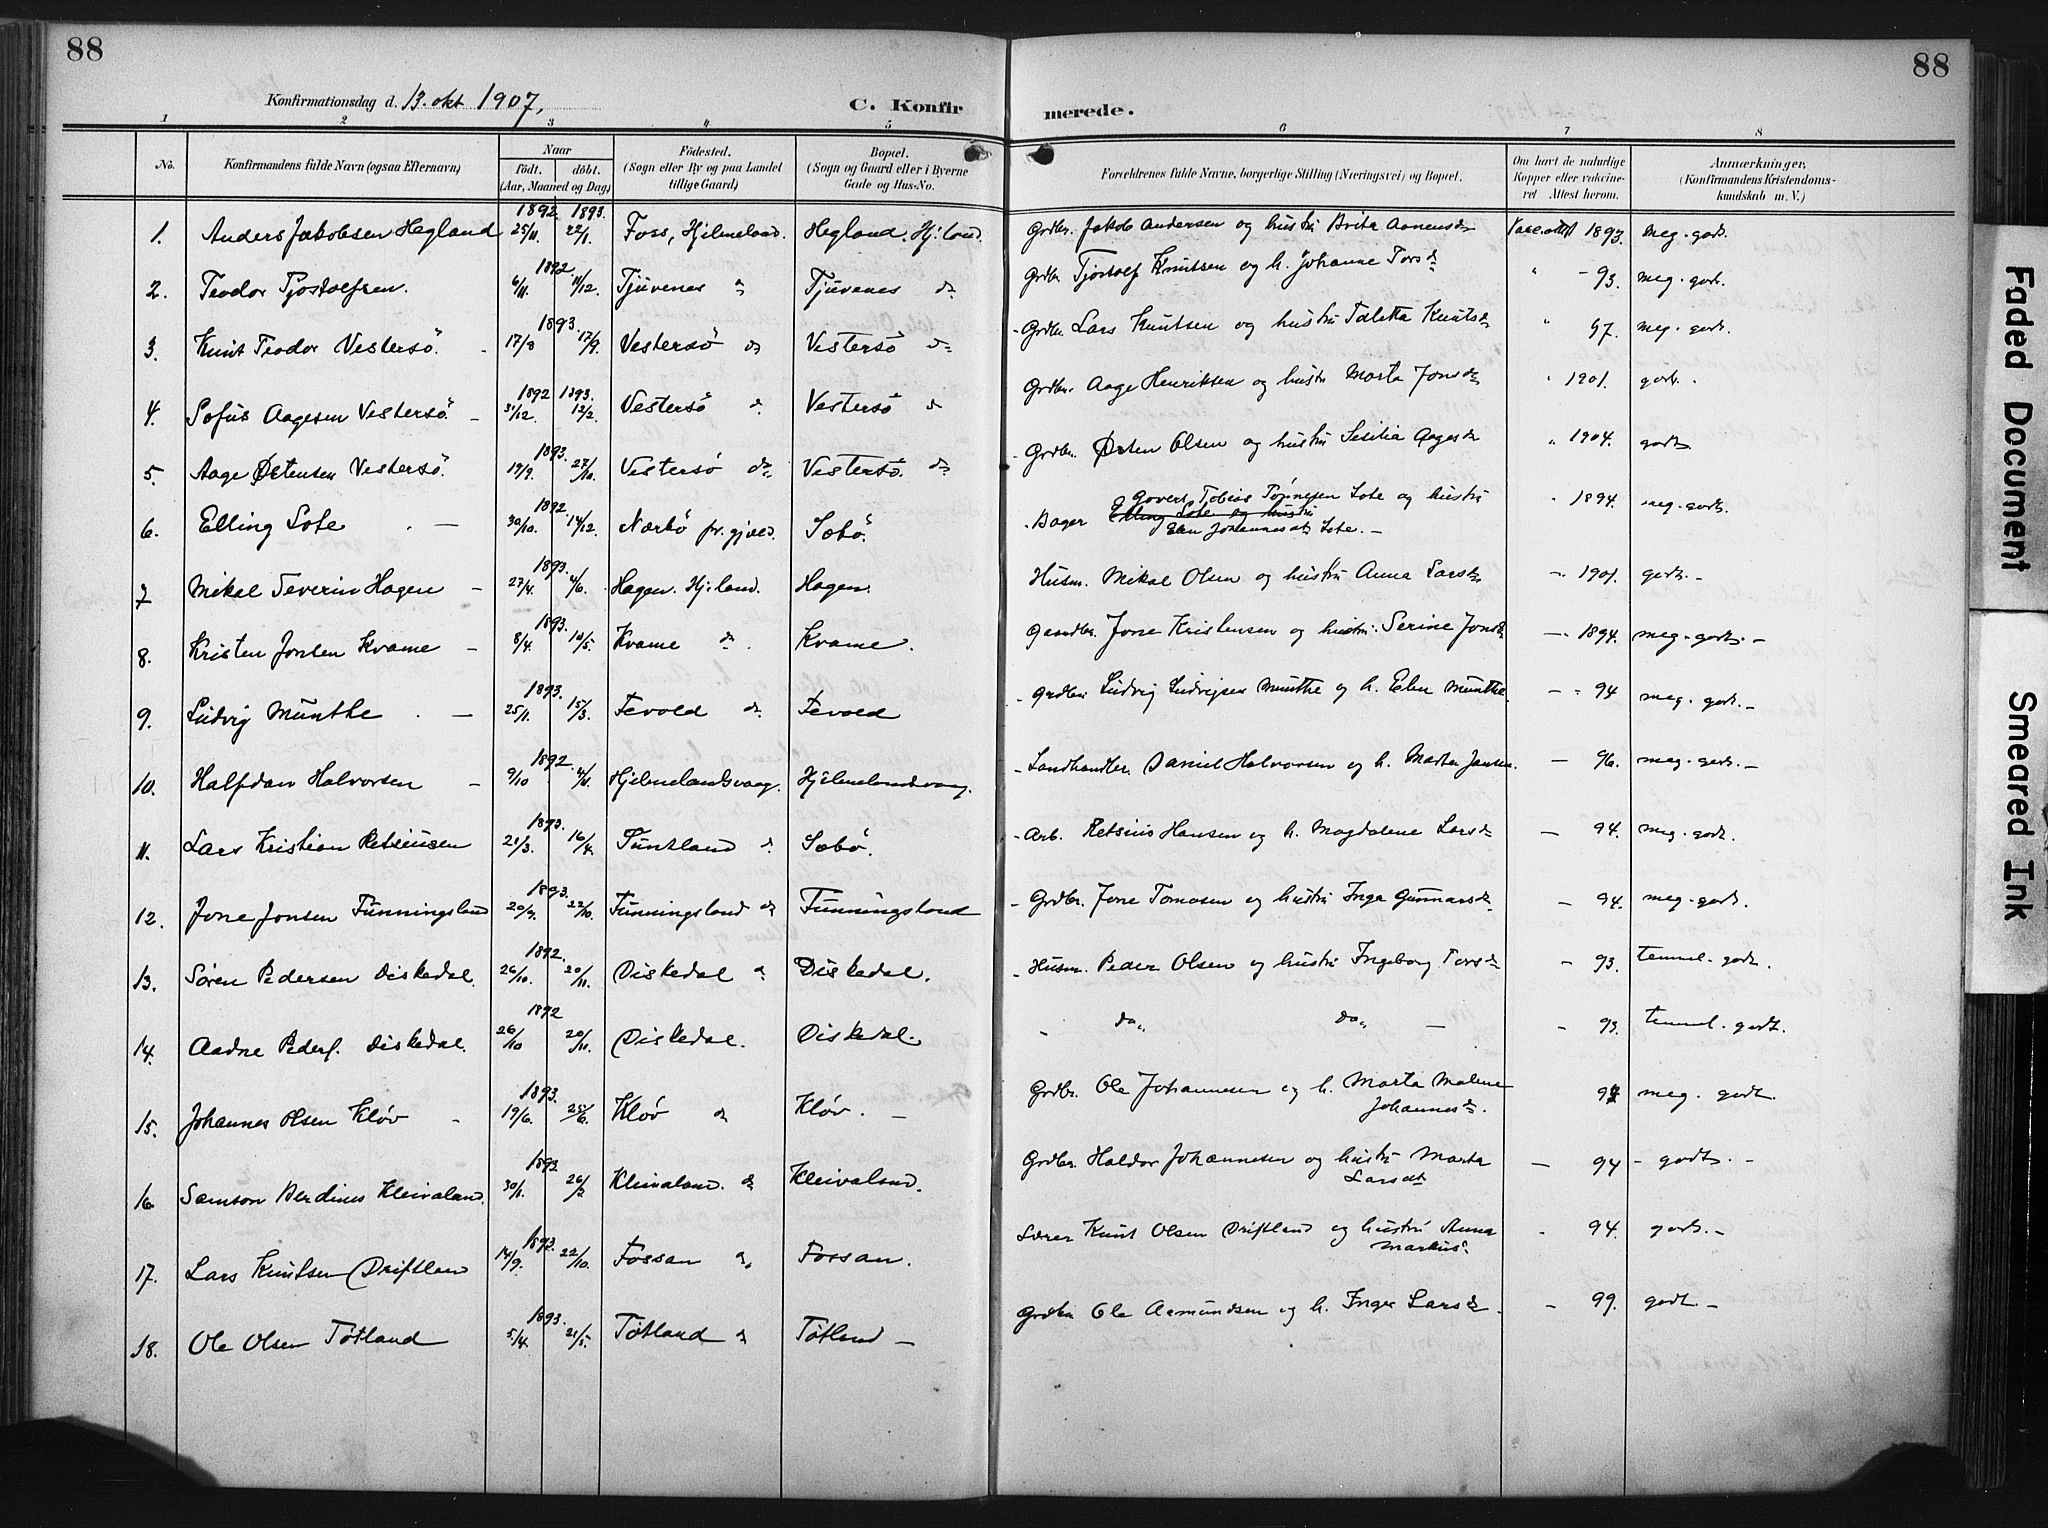 88
88
Konfirmationsdag d. 13. okt 1907,
C. Konfirmerede.
1 2 3 4 5 6 7 8
No. Konfirmandens fulde Navn (ogsaa Efternavn) Naar født. døbt. (Aar, Maaned og Dag) Fødested. (Sogn eller By og paa Landet tillige Gaard) Bopæl. (Sogn og Gaard eller i Byerne Gade og Hus-No. Forældrenes fulde Navne, borgerlige Stilling (Næringsvei) og Bopæl. Om havt de naturlige Kopper eller vakcineret Attest herom. Anmærkninger. (Konfirmandens Kristendomskundskab m. V.)
1. Anders Jakobsen Hegland 1892 25/11. 1893. 22/1. Foss, Hjelmeland. Hegland. Hj:land. Grdbr. Jakob Andersen og hustru Brita Aanensdr 1893. meg. godt.
2. Teodor Tjostolfsen. 1892. 6/11. 11/12. Tjuvenes do Tjuvenes do Grdbr Tjostolf Knutsen og h. Johanne Torsdr " - 93. meg. godt.
3. Knut Teodor Vestersö. 1893. 17/8 17/9. Vestersö do Vestersö do - Grdbr. Lars Knutsen og hustru Taletta Knutsdr " 97. meg. godt.
4. Sofus Aagesen Vestersö. - 1892 31/12. 1893. 12/2. Vestersö do Vestersö do Grdbr. Aage Henriksen og hustr Marta Jonsdr " 1901. godt.
5. Aage Ørtensen Vestersö. 1893. 19/9. 27/10. Vestersö do Vestersö. do - Grdbr. Ørten Olsen og hustru Sesilia Aagesdr " 1904. godt
6. Elling Lote - 1892. 30/10. 14/12. Nærbö pr.gjæld. Sæbö. - Bager Govert Tobias Tönnesen Lote og hustru
Elling Lote og hustru
Elen Johannesdt Lote. - " 1894. meg. godt.
7 Mikal Severin Hagen - 1893. 27/4. 4/6. Hagen. Hj:land. Hagen. Husm. Mikal Olsen og hustru Anna Larsdr - 1901. godt. -
8. Kristen Jonsen Kvame - 1893. 8/4. 10/5. Kvame do. Kvame. Gaardbr. Jone Kristensen og hustru. Serine Jonsdr - 1894. meg. godt. -
9. Ludvig Munthe - 1893. 25/1. 15/3. Tevold do Tevold - Grdbr. Ludvig Ludvigsen Munthe og h. Elen Munthe. - " 94 meg. godt. -
10. Halfdan Halvorsen - 1892. 9/10 4/11. Hjelmelandsvaag. Hjelmelandsvaag. - Landhandler. Daniel Halvorsen og h. Marta Jansen. - 96. meg. godt. -
11. Lars Kristian Retsiusen 1893. 21/3. 16/4. Tuntland do Sæbö. - Arb. Retsius Hansen og h. Magdalene Larsdr - 94. meg. godt.
12. Jone Jonsen Funningsland 1893. 20/9. 22/10. Funningsland do Funningsland - Grdbr. Jone Tomasen og hustru Inga Gunnarsdr. - 94. meg. godt.
13. Søren Pedersen Diskedal. 1892. 26/10. 20/11. Diskedal do Diskedal. - Husm. Peder Olsen og hustru Ingeborg Torsdr - 93. temmel. godt.
14. Aadne Peders. Diskedal. 1892 26/10 20/11. Diskedal. Diskedal. - do do - - 93. temmel. godt.
15. Johannes Olsen Kløv - 1893. 19/6. 25/6. Kløv do Kløv. - Grdbr. Ole Johannesen og h. Marta Malene
Johannesdr. 94 meg. godt.
16. Samson Berdines Kleivaland. 1893 30/1. 26/2 Kleivaland. do Kleivaland. Grdbr. Haldor Johannesen og hustru Marta
Larsdt - 94 - godt. -
17. Lars Knutsen Driftland 1893. 14/9. 22/10. Fossan do Fossan. Lærer Knut Olsen Driftland og hustru Anna
- 94. godt. -
18. Ole Olsen Tøtland 1893. 5/4. 21/5. Tøtland do Tøtland - Grdbr. Ole Asmundsen og h. Inger Larsdr - - 99. godt -
Faded Document
Smeared Ink